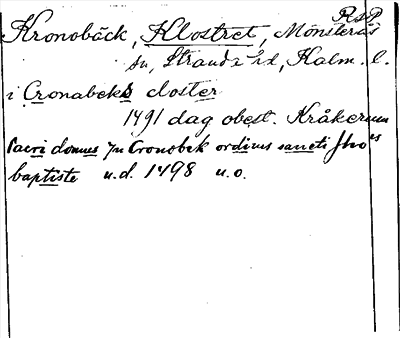 RSP
Kronobäck, Klostret, Mönsterås
sn, Stranda hd, Kalm. l.
i Cronabeks closter
1491 dag obest. Kråkerum
sacri domus Jn Cronobek ordinis sancti Jhois
baptiste u.d. 1498 u.o.